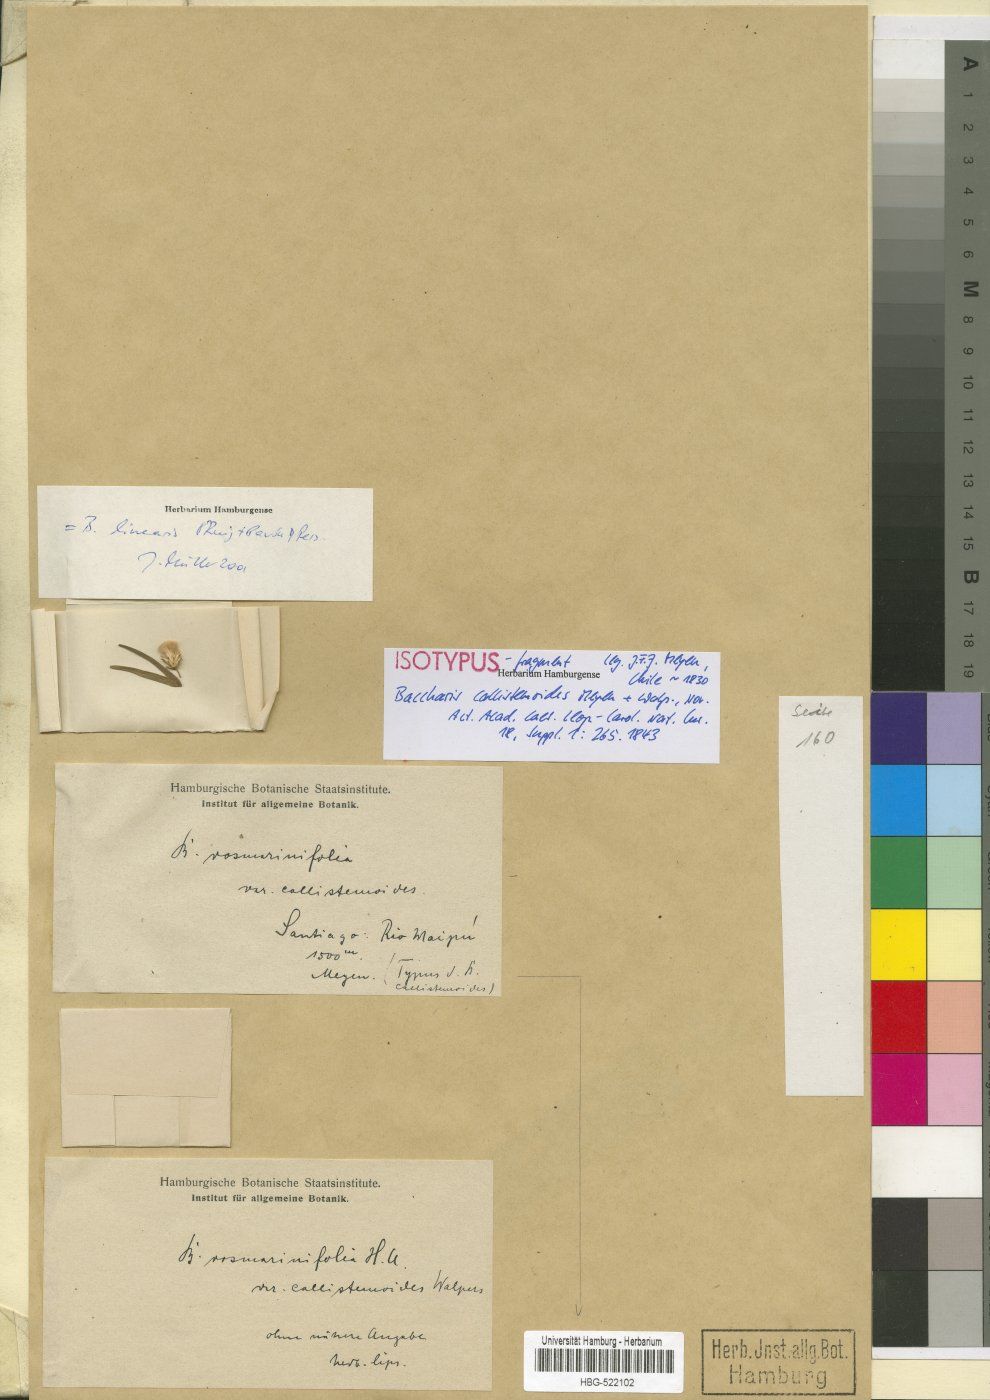 Herbarium Hamburgense
= B. linearis (Ruiz + Pavon) Pers.
J. Müller 2001
ISOTYPUS - fragment leg. J.F.J. Meyen,
Herbarium Hamburgense
Chile ~ 1830
Baccharis callistemoides Meyen + Walp., Nov.
Act. Acad. Caes. Leop.-Carol. Nat. Cur.
18, Suppl. 1: 265. 1843
Seite
160
Hamburgische Botanische Staatsinstitute.
Institut für allgemeine Botanik.
B. rosmarinifolia
var. callistemoides.
Santiago: Rio Maipú
1500 m.
Meyen. (Typus v. B.
callistemoides)
Hamburgische Botanische Staatsinstitute.
Institut für allgemeine Botanik.
B. rosmarinifolia H. A.
var. callistemoides Walpers
ohne nähere Angabe
herb. lips.
Universität Hamburg - Herbarium
HBG-522102
Herb. Jnst. allg. Bot.
Hamburg
A
1
2
3
4
5
6
M
8
9
10
11
12
13
14
15
B
17
18
19